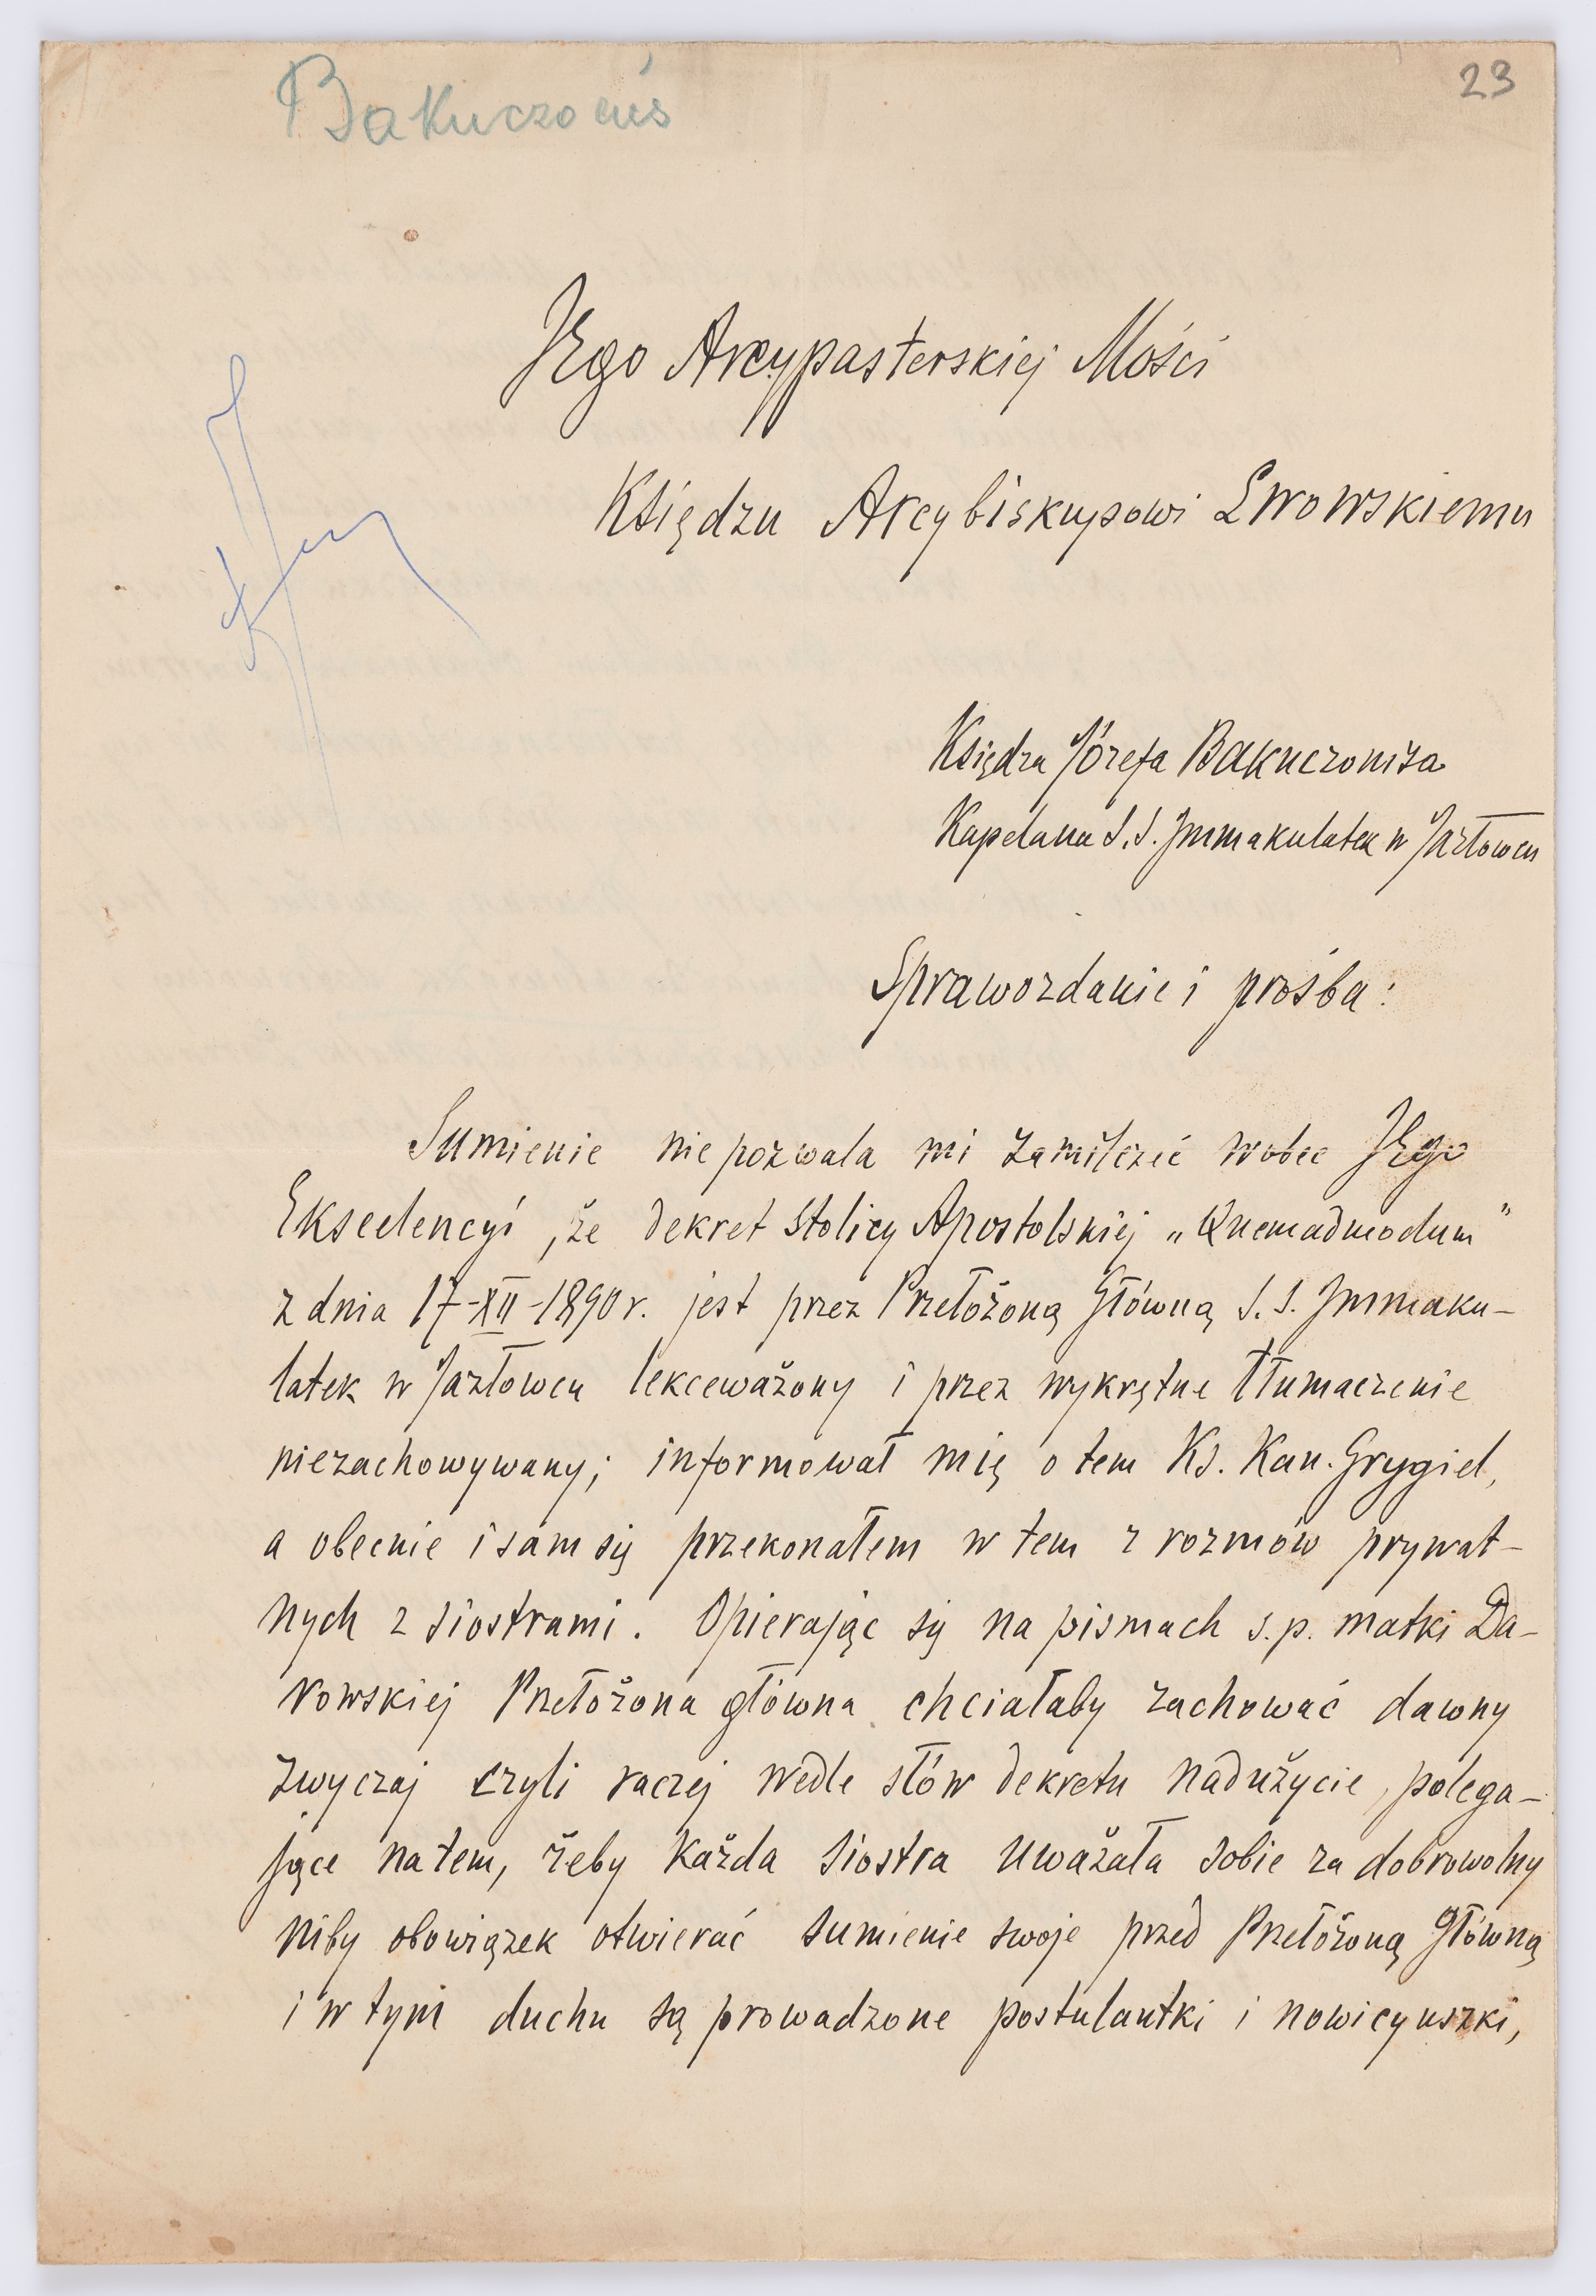 23
Bakuczonis
JEgo Arcypasterskiej Mości
Księdzu Arcybiskupowi Lwowskiemu
Księdza Józefa Bakuczonisa
Kapelana S.S. Immakulatek w Jazłowcu
Sprawozdanie i prośba:
Sumienie nie pozwala mi zamilczeć wobec JEgo
Ekscelencyi, że dekret Stolicy Apostolskiej „Quemadmodum”
z dnia 17-XII-1890 r. jest przez Przełożoną Główną S.S. Immaku-
latek w Jazłowcu lekceważony i przez wykrętne tłumaczenie
niezachowywany; informował mię o tem Ks. Kan. Grygiel,
a obecnie i sam się przekonałem w tem z rozmów prywat-
nych z siostrami. Opierając się na pismach s.p. matki Da-
rowskiej Przełożona główna chciałaby zachować dawny
zwyczaj czyli raczej wedle słów dekretu nadużycie, polega-
jące na tem, żeby każda siostra uważała sobie za dobrowolny
niby obowiązek otwierać sumienie swoje przed Przełożoną Główną
i w tym duchu są prowadzone postulantki i nowicyuszki,